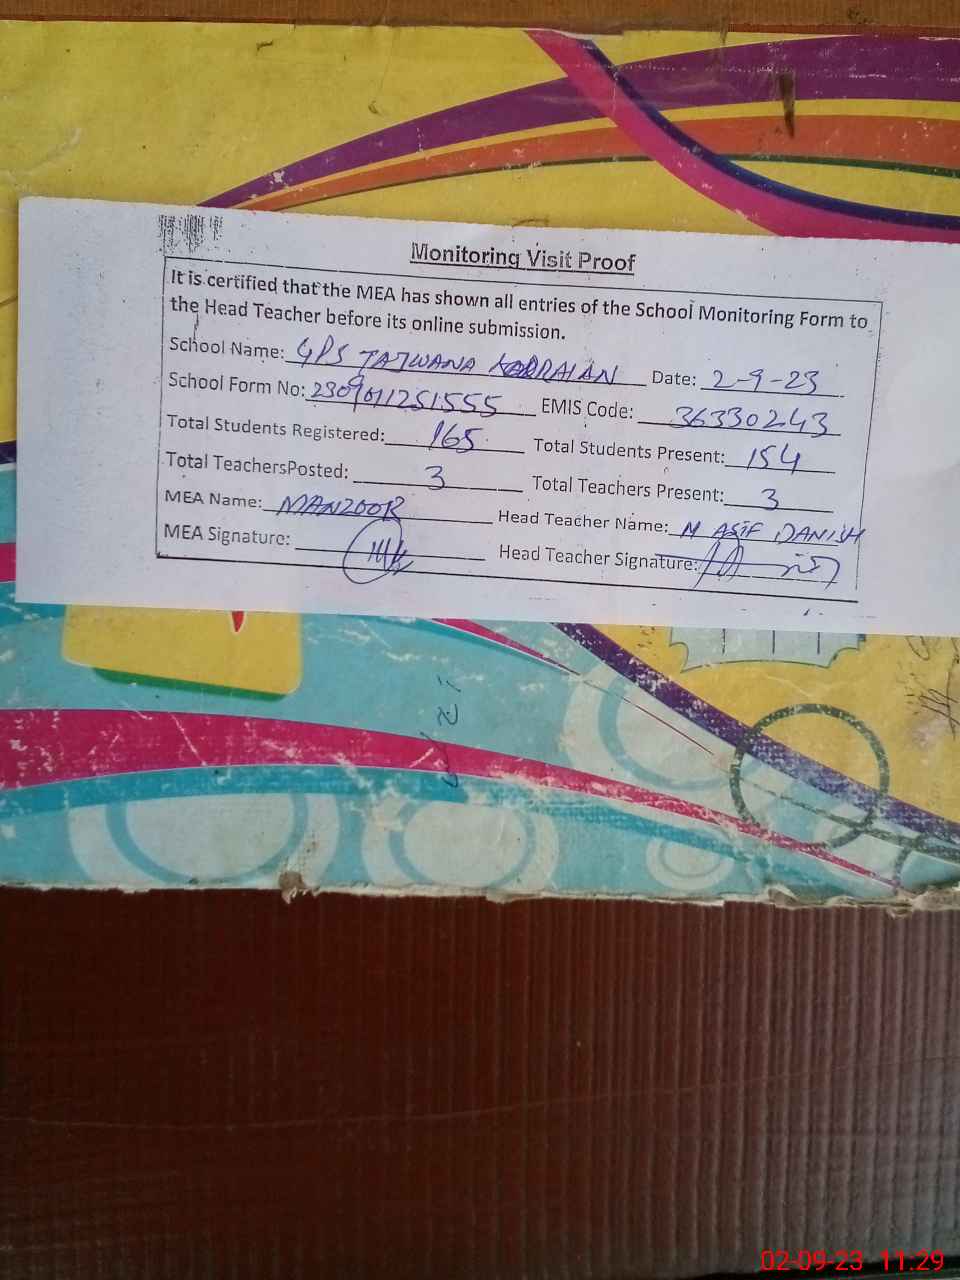 Monitoring Visit Proof
It is certified that the MEA has shown all entries of the School Monitoring Form to
the Head Teacher before its online submission.
School Name: GPS TATWANA Date: 2-9-23
School Form No: 2309011251555 EMIS Code: 36330243
Total Students Registered: 165 Total Students Present: 154
Total TeachersPosted: 3 Total Teachers Present: 3
MEA Name: MANZOOR Head Teacher Name: M ASIF DANISH
MEA Signature: Head Teacher Signature:
02-09-23 11:29